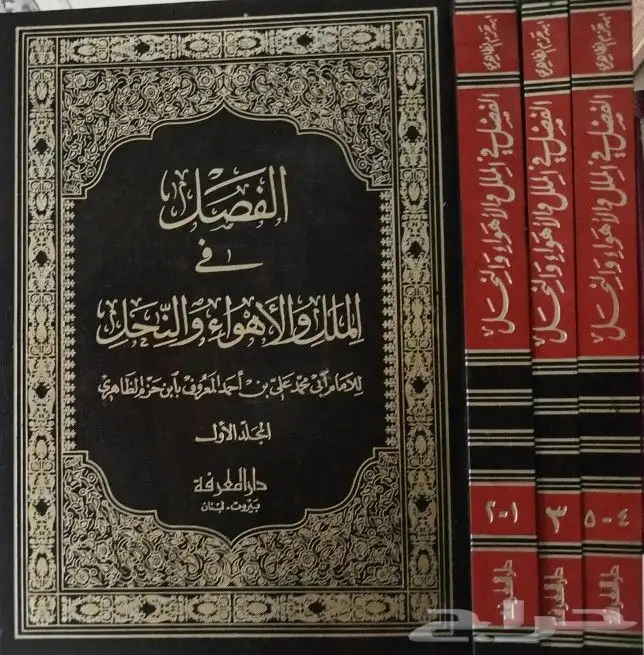 الفصل
في
الملل والأهواء والنحل
للامام أبي محمد علي بن أحمد المعروف بابن حزم الظاهري
المجلد الأول
دار المعرفة
بيروت - لبنان
ابن حزم الظاهري
الفصل في الملل والأهواء والنحل
١-٢
دار المعرفة
ابن حزم الظاهري
الفصل في الملل والأهواء والنحل
٣
دار المعرفة
ابن حزم الظاهري
الفصل في الملل والأهواء والنحل
٤-٥
دار المعرفة
حراج